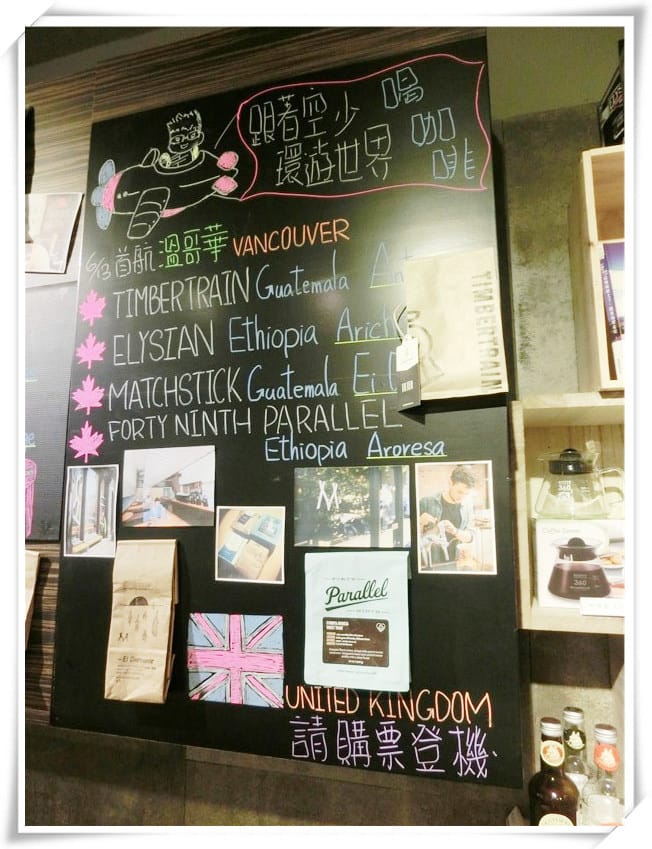 跟著空少 喝
環遊世界 咖
啡
6/13首航 溫哥華 VANCOUVER
TIMBERTRAIN Guatemala Ant
ELYSIAN Ethiopia Arich
MATCHSTICK Guatemala El
FORTY NINTH PARALLEL
Ethiopia Aroresa
TIMBERTRAIN
M
Parallel
360
360
El Diamante
UNITED KINGDOM
請購票登機